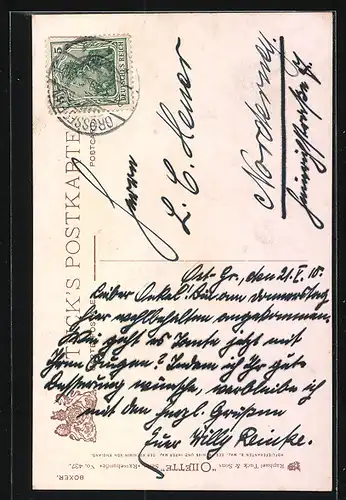 5
DEUTSCHES REICH
TUCK'S POSTKARTE
POSTCARD
Herrn
L. C. Heuer
Norderney
Heinrichstraße 7
den 21. V. 10.
Lieber Onkel! Bin am Donnerstag
hier wohlbehalten angekommen.
Wie geht es Tante jetzt mit
Ihren Augen? Indem ich Ihr gute
Besserung wünsche, verbleibe ich
mit den herzl. Grüßen
Euer Willy Reinke.
Raphael Tuck & Sons' "OILETTE"
BOXER.